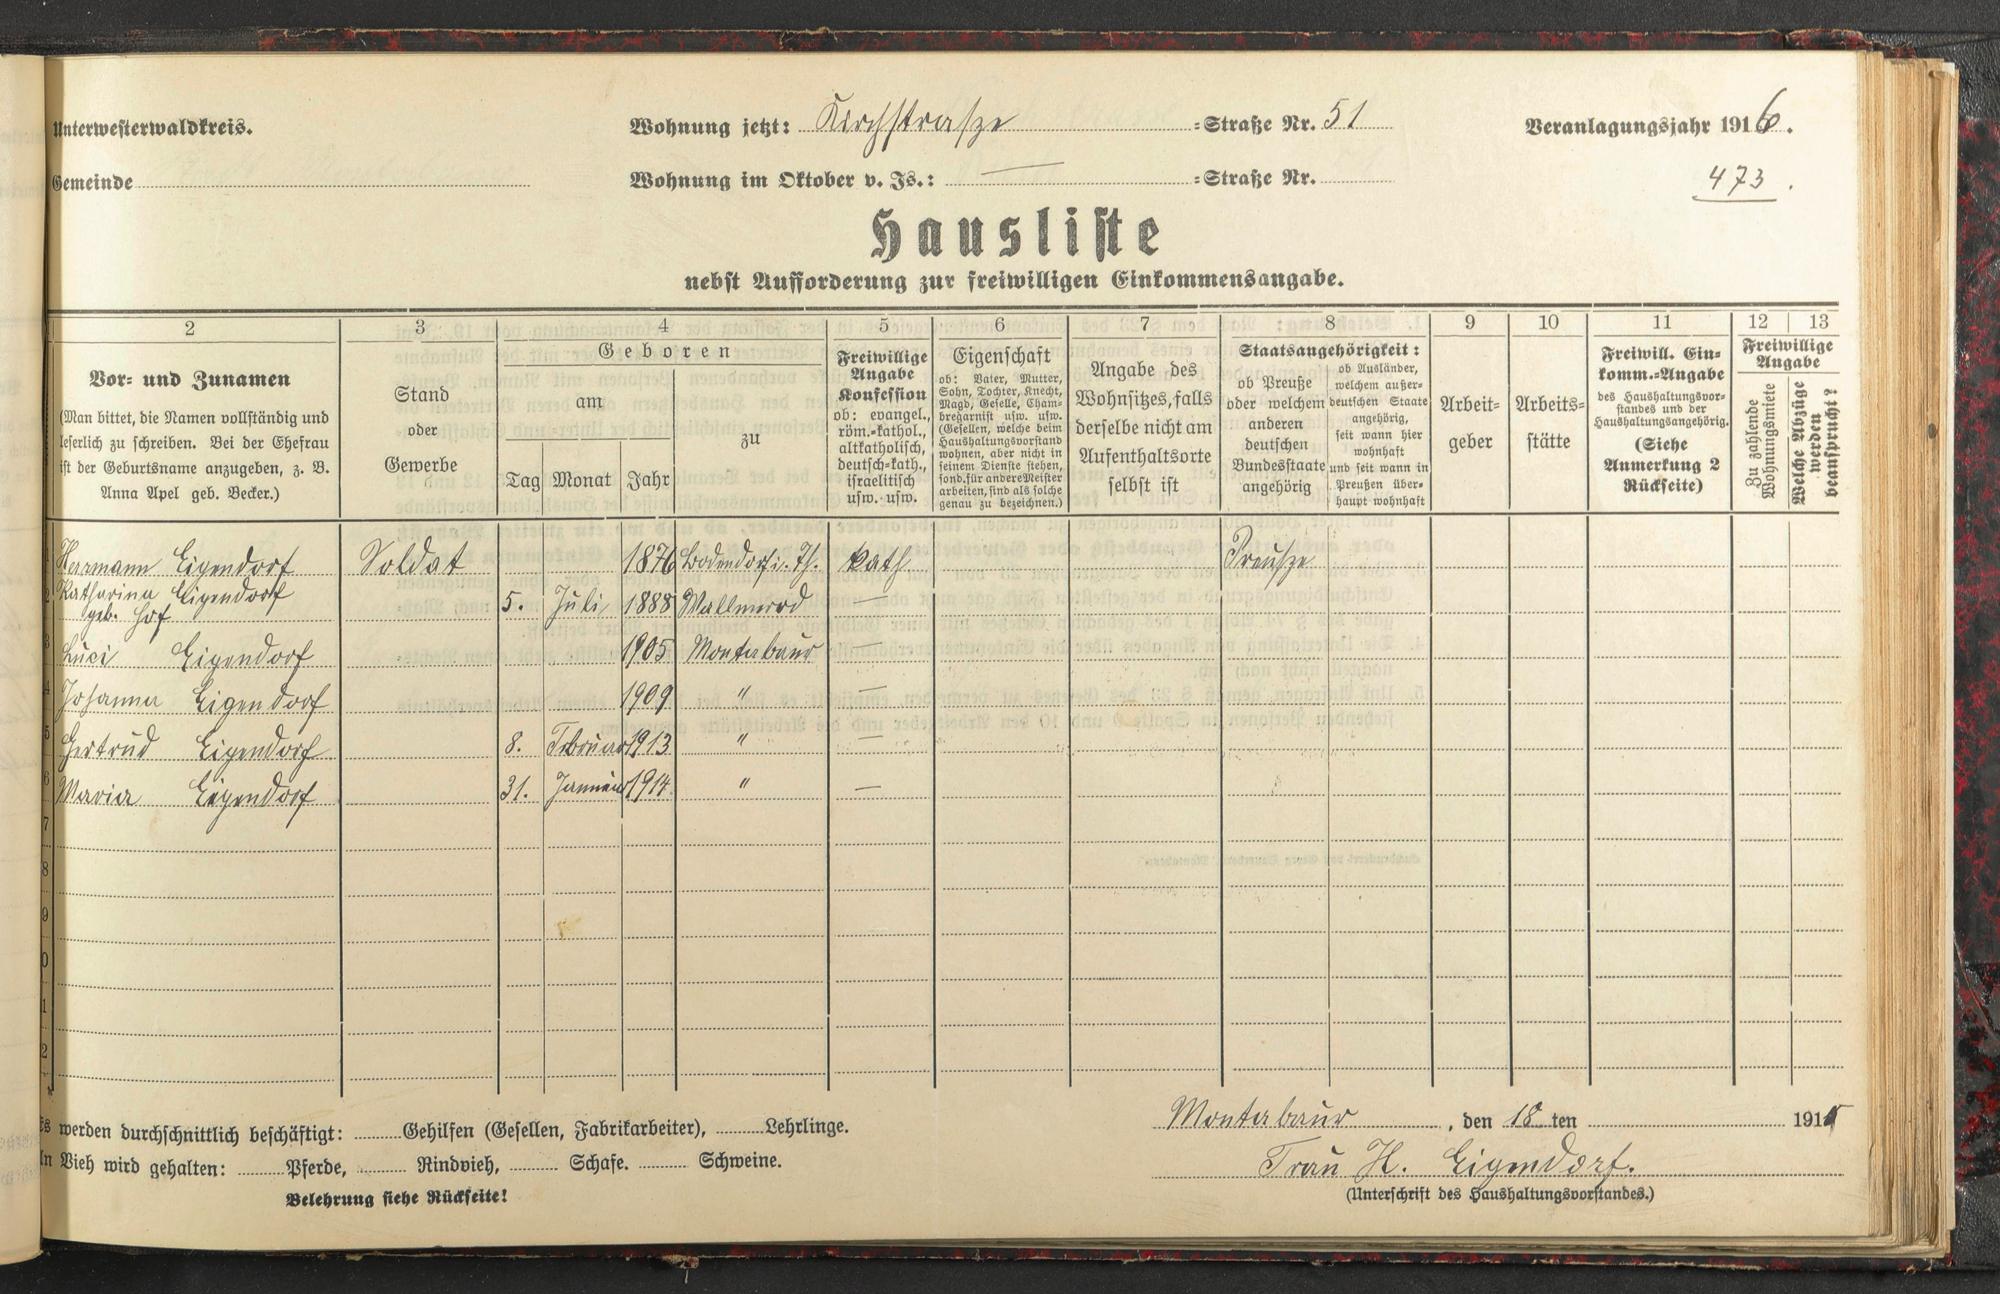 Unterwesterwaldkreis.
Wohnung jetzt: Kirchstrasze =Straße Nr. 51
Veranlagungsjahr 1916.
Gemeinde
Wohnung im Oktober v. Js.: — =Straße Nr.
473.
Hausliste
nebst Aufforderung zur freiwilligen Einkommensangabe.
2 3 4 5 6 7 8 9 10 11 12 13
Vor= und Zunamen
(Man bittet, die Namen vollständig und
leserlich zu schreiben. Bei der Ehefrau
ist der Geburtsname anzugeben, z. B.
Anna Apel geb. Becker.)
Stand
oder
Gewerbe
Geboren
am
Tag Monat Jahr
zu
Freiwillige
Angabe
Konfession
ob: evangel.,
röm.=kathol.,
altkatholisch,
deutsch=kath.,
israelitisch
usw. usw.
Eigenschaft
ob: Vater, Mutter,
Sohn, Tochter, Knecht,
Magd, Geselle, Cham=
bregarnist usw. usw.
(Gesellen, welche beim
Haushaltungsvorstand
wohnen, aber nicht in
seinem Dienste stehen,
sond. für andere Meister
arbeiten, sind als solche
genau zu bezeichnen.)
Angabe des
Wohnsitzes, falls
derselbe nicht am
Aufenthaltsorte
selbst ist
Staatsangehörigkeit:
ob Preuße
oder welchem
anderen
deutschen
Bundesstaate
angehörig
ob Ausländer,
welchem außer=
deutschen Staate
angehörig,
seit wann hier
wohnhaft
und seit wann in
Preußen über=
haupt wohnhaft
Arbeit=
geber
Arbeits=
stätte
Freiwill. Ein=
komm.=Angabe
des Haushaltungsvor=
standes und der
Haushaltungsangehörig.
(Siehe
Anmerkung 2
Rückseite)
Freiwillige
Angabe
Zu zahlende
Wohnungsmiete
Welche Abzüge
werden
beansprucht?
1 Herrmann Eigendorf Soldat 1876 Bodendorf i. Th. kath Preusze
2 Katharina Eigendorf
geb. Hof 5. Juli 1888 Wallmerod —
3 Luci Eigendorf 1905 Montabaur —
4 Johanna Eigendorf 1909 " —
5 Gertrud Eigendorf 8. Februar 1913 " —
6 Maria Eigendorf 31. Januar 1914 " —
7
8
9
0
1
2
Es werden durchschnittlich beschäftigt: Gehilfen (Gesellen, Fabrikarbeiter), Lehrlinge.
An Vieh wird gehalten: Pferde, Rindvieh, Schafe. Schweine.
Belehrung siehe Rückseite!
Montabaur, den 18 ten 1915
Frau H. Eigendorf.
(Unterschrift des Haushaltungsvorstandes.)